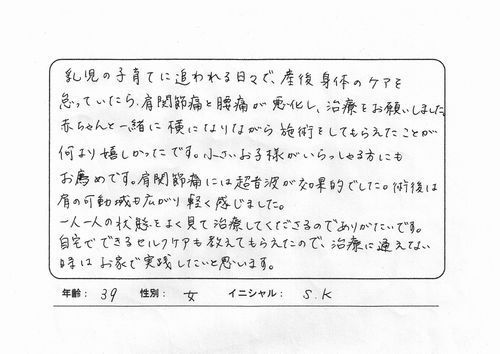 乳児の子育てに追われる日々で、産後身体のケアを
怠っていたら、肩関節痛と腰痛が悪化し、治療をお願いしました。
赤ちゃんと一緒に横になりながら施術をしてもらえたことが
何より嬉しかったです。小さいお子様がいらっしゃる方にも
お薦めです。肩関節痛には超音波が効果的でした。術後は
肩の可動域も広がり軽く感じました。
一人一人の状態をよく見て治療してくださるのでありがたいです。
自宅でできるセルフケアも教えてもらえたので、治療に通えない
時はお家で実践したいと思います。
年齢： 39 性別： 女 イニシャル： S.K